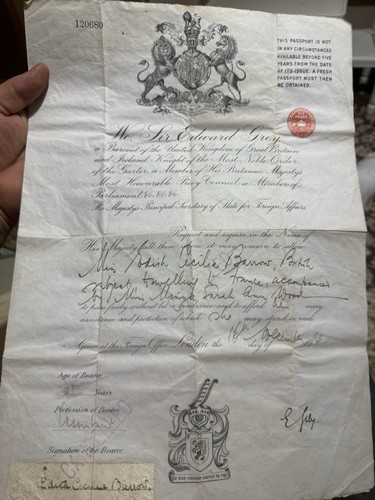 120680
THIS PASSPORT IS NOT
IN ANY CIRCUMSTANCES
AVAILABLE BEYOND FIVE
YEARS FROM THE DATE
OF ITS ISSUE. A FRESH
PASSPORT MUST THEN
BE OBTAINED.
We, Sir Edward Grey,
a Baronet of the United Kingdom of Great Britain
and Ireland, Knight of the Most Noble Order
of the Garter, a Member of His Britannic Majesty's
Most Honourable Privy Council, a Member of
Parliament &c. &c. &c.
His Majesty's Principal Secretary of State for Foreign Affairs
Request and require in the Name of
His Majesty all those whom it may concern to allow
Miss Edith Cecilia Barrow, British
subject, travelling to France, accompanied
by Miss Sarah Ann Wood
to pass freely without let or hindrance and to afford her every
assistance and protection of which she may stand in need.
Given at the Foreign Office, London, the 16th day of December
Age of Bearer
Years
Profession of Bearer
Assistant
Signature of the Bearer.
E Grey.
Edith Cecilia Barrow.